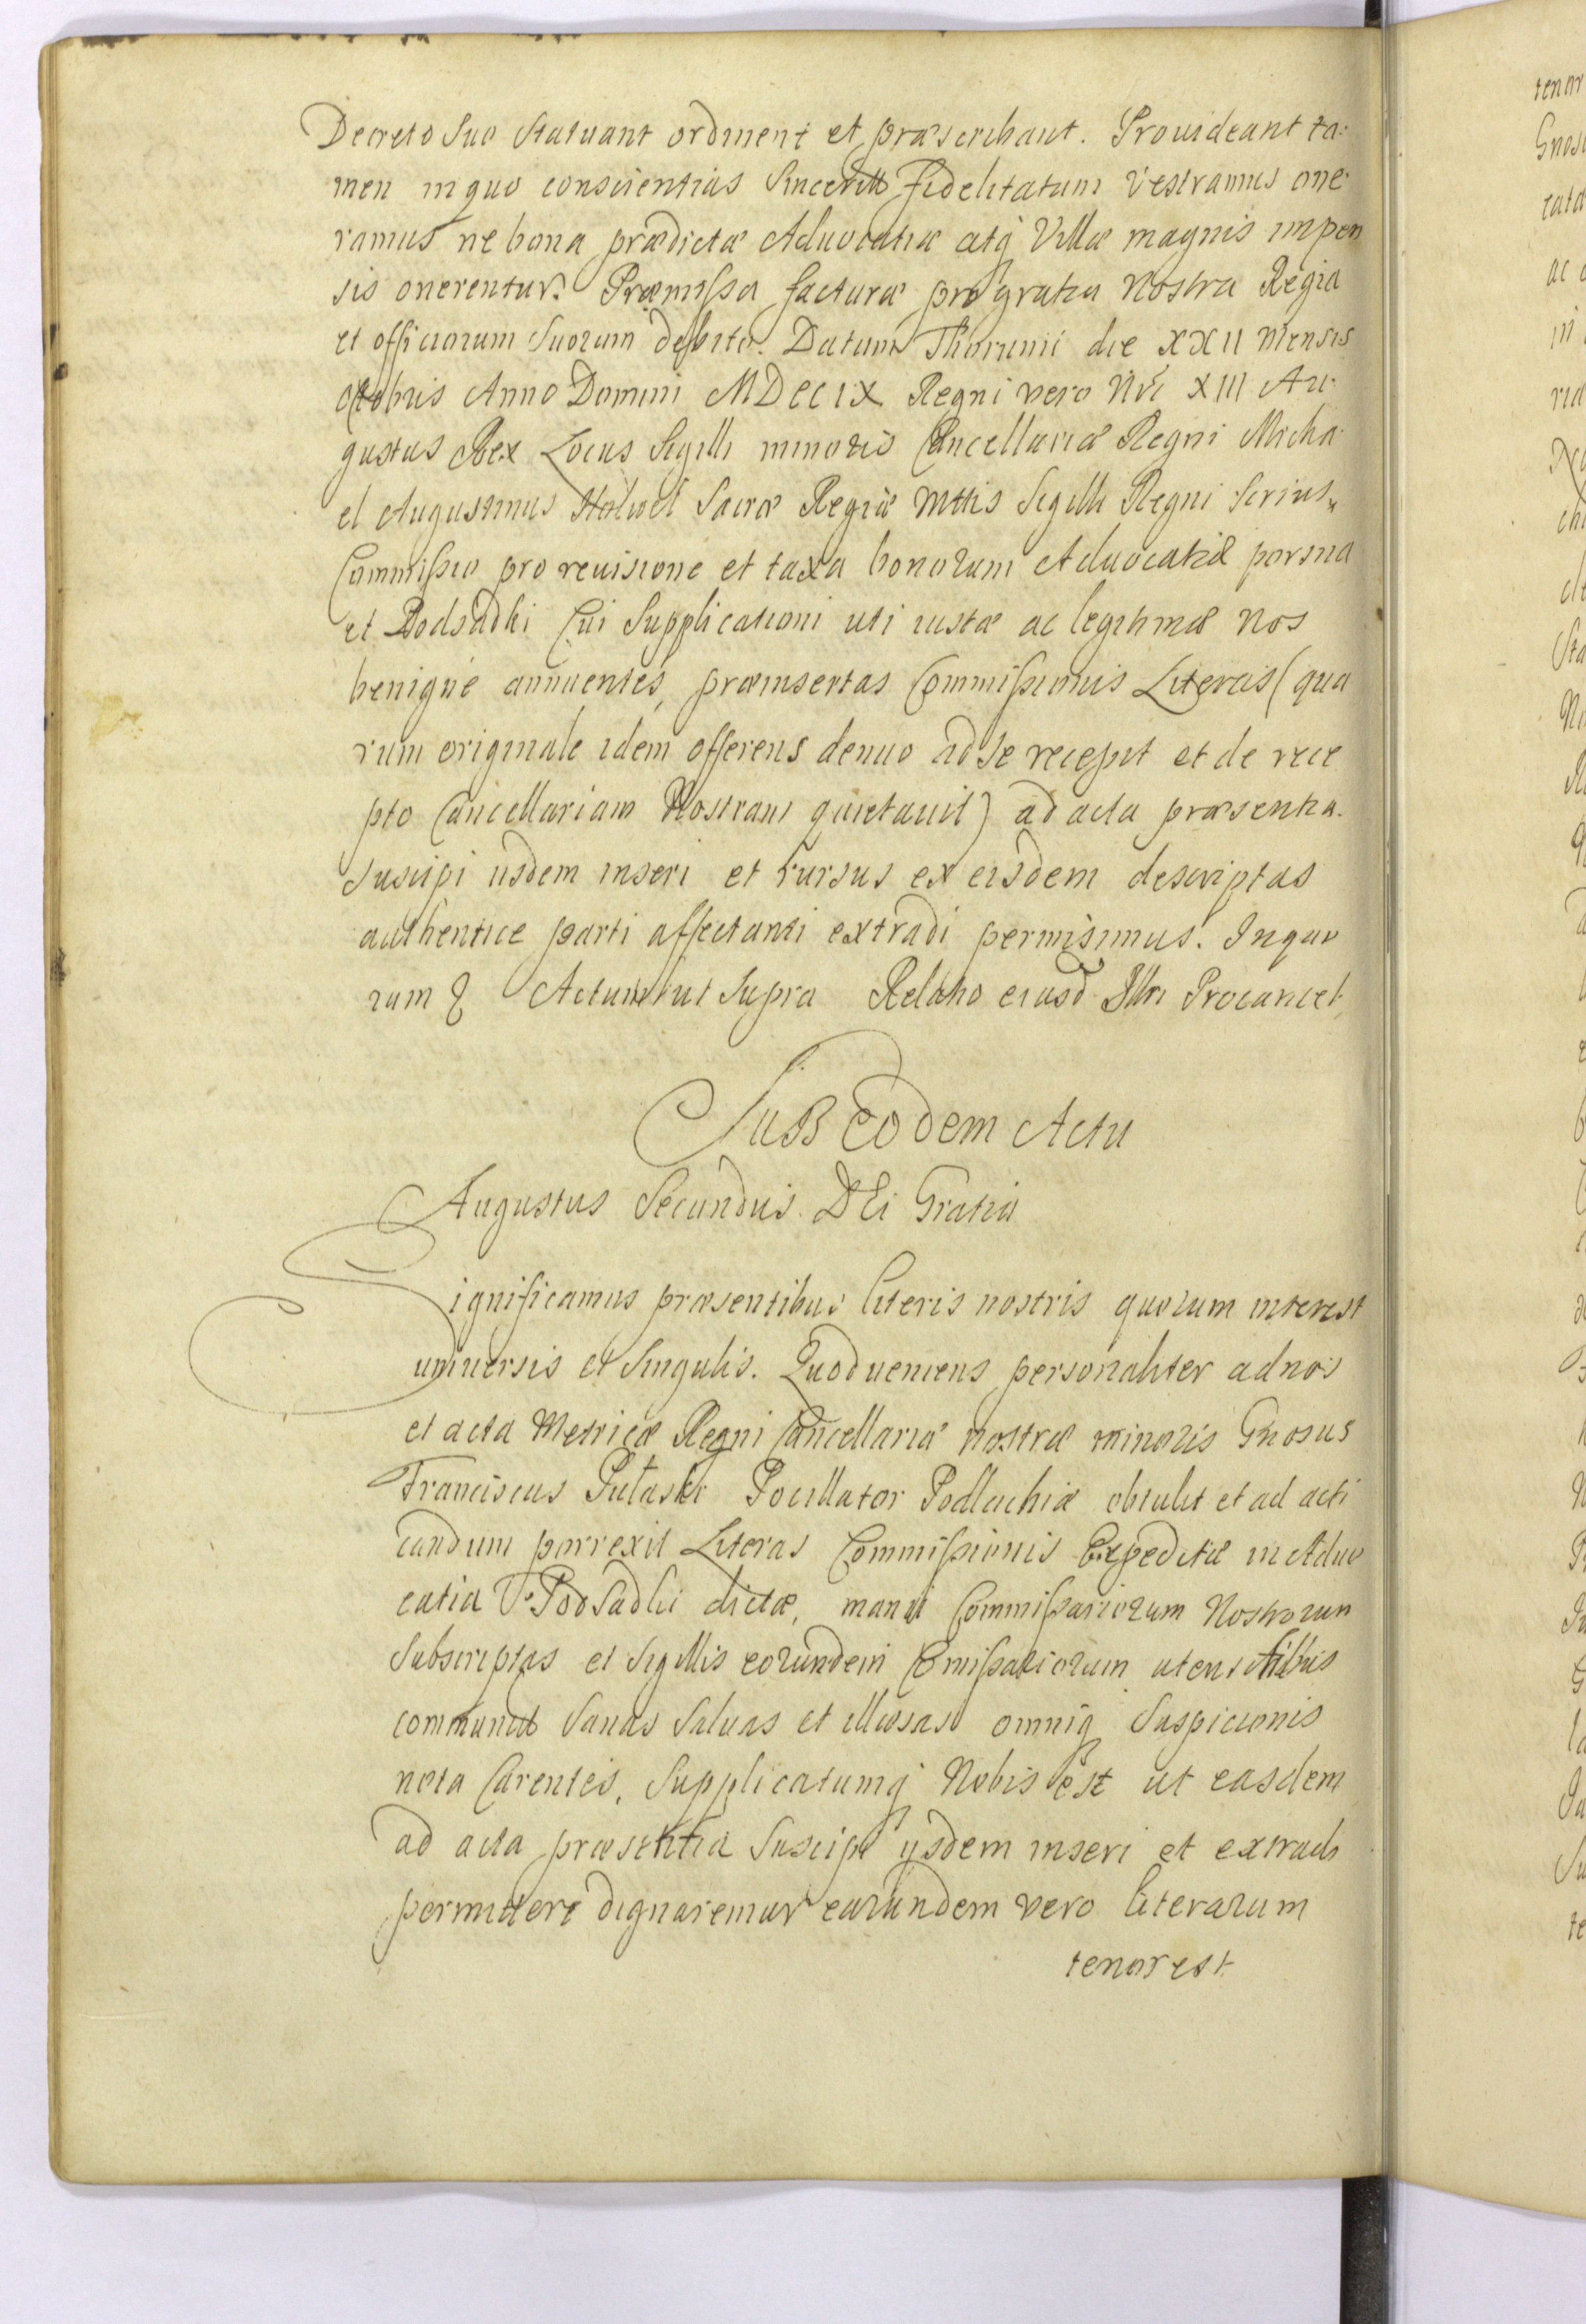 Decreto suo statuant ordinent et præscribant. Prouideant ta:
men in quo conscientias Sinceritt Fidelitatum Vestrarum one:
ramus ne bona prædictæ Aduocatiæ atq Villæ magnis impen
sis onerentur. Præmissa facturæ pro gratia Nostra Regia
et officiorum suorum debito. Datum Thorunii die XXII Mensis
Octobris Anno Domini MDCCIX Regni vero Nri XIII Au:
gustus Rex Locus Sigilli minoris Cancellariæ Regni Micha:
el Augustinus Sacræ Regiæ Mttis Sigilli Regni Scrius
Commissio pro reuisione et taxa bonorum Aduocatiæ
et Podsadki Cui Supplicationi uti iustæ ac legitimæ Nos
benigne annuentes, præinsertas Commissionis Literas (qua
rum originale idem offerens denuo ad se recepit et de rece
pto Cancellariam Nostram quietauit) ad acta præsentia
suscipi iisdem inseri et rursus ex eisdem descriptas
authentice parti affectanti extradi permisimus. In quo
rum Actum ut supra Relatio eiusd Illri Procancel,
Sub Eodem Actu
Augustus Secundus DEi Gratia
Significamus præsentibus literis nostris quorum interest
uniuersis et singulis. Quod ueniens personaliter ad nos
et acta Metricæ Regni Cancellariæ nostræ minoris Gnosus
Franciscus Pulaski Pocillator Podlachiæ obtulit et ad acti
candum porrexit Literas Commissionis Expeditæ in Aduo
catia Podsadki dictæ, manu Commissariorum Nostrorum
Subscriptas et Sigillis eorundem Comissariorum utensilibus
communit Sanas Saluas et illæsas omniq Suspicionis
nota Carentes, Supplicatumq Nobis est ut easdem
ad acta præsentia Suscipi ysdem inseri et extradi
permittere dignaremur earundem vero literarum
tenor est